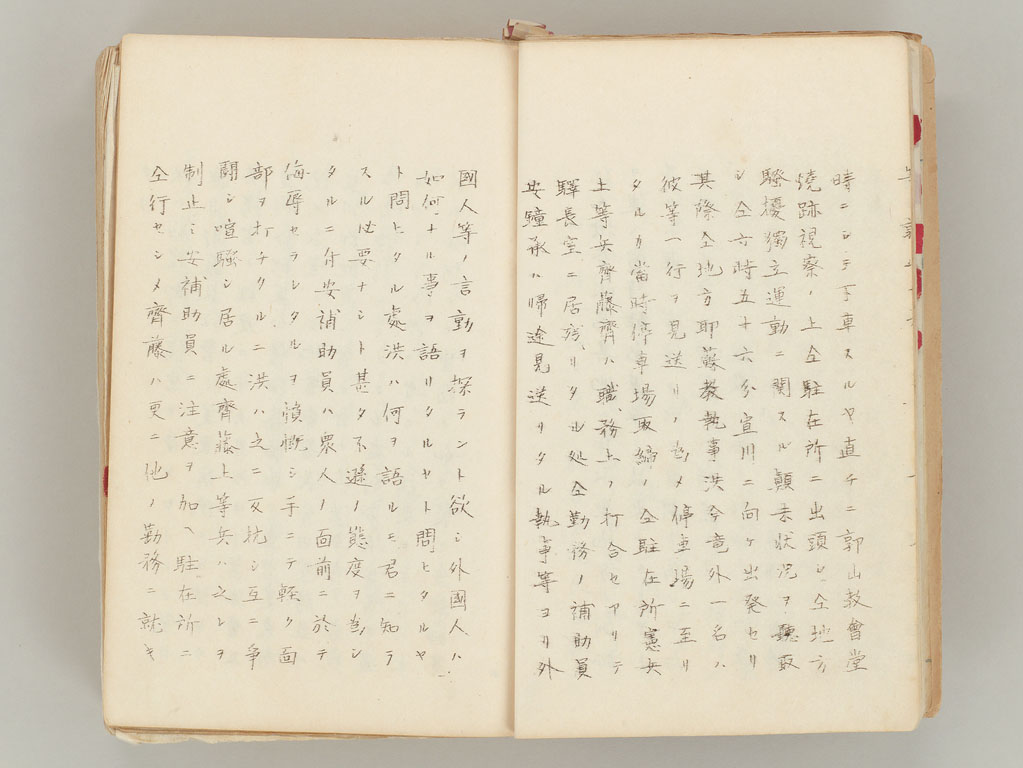 時ニシテ下車スルヤ直チニ郭山教會堂
燒跡視察ノ上仝駐在所ニ出頭シ仝地方
騒擾獨立運動ニ関スル顛末状况ヲ聽取
シ仝六時五十六分宣川ニ向ケ出発セリ
其際仝地方耶蘇教執事洪今竜外一名ハ
彼等一行ヲ見送リノ為メ停車場ニ至リ
タルカ當時停車場取締ノ仝駐在所憲兵
上等兵齊藤齊ハ職務上ノ打合セアリテ
驛長室ニ居残リタル処仝勤務ノ補助員
安鐘承ハ帰途見送リタル執事等ヨリ外
國人等ノ言動ヲ探ラント欲シ外國人ハ
如何ナル事ヲ語リタルヤト問ヒタルヤ
ト問ヒタル處洪ハ何ヲ語ルモ君ニ知ラ
スル必要ナシト甚タ不遜ノ態度ヲ為シ
タルニ付安補助員ハ衆人ノ面前ニ於テ
侮辱セラレタルヲ憤慨シ手ニテ軽ク面
部ヲ打チタルニ洪ハ之ニ反抗シ互ニ争
闘シ喧騒シ居ル處齊藤上等兵ハ之レヲ
制止シ安補助員ニ注意ヲ加ヘ駐在所ニ
仝行セシメ齊藤ハ更ニ他ノ勤務ニ就キ